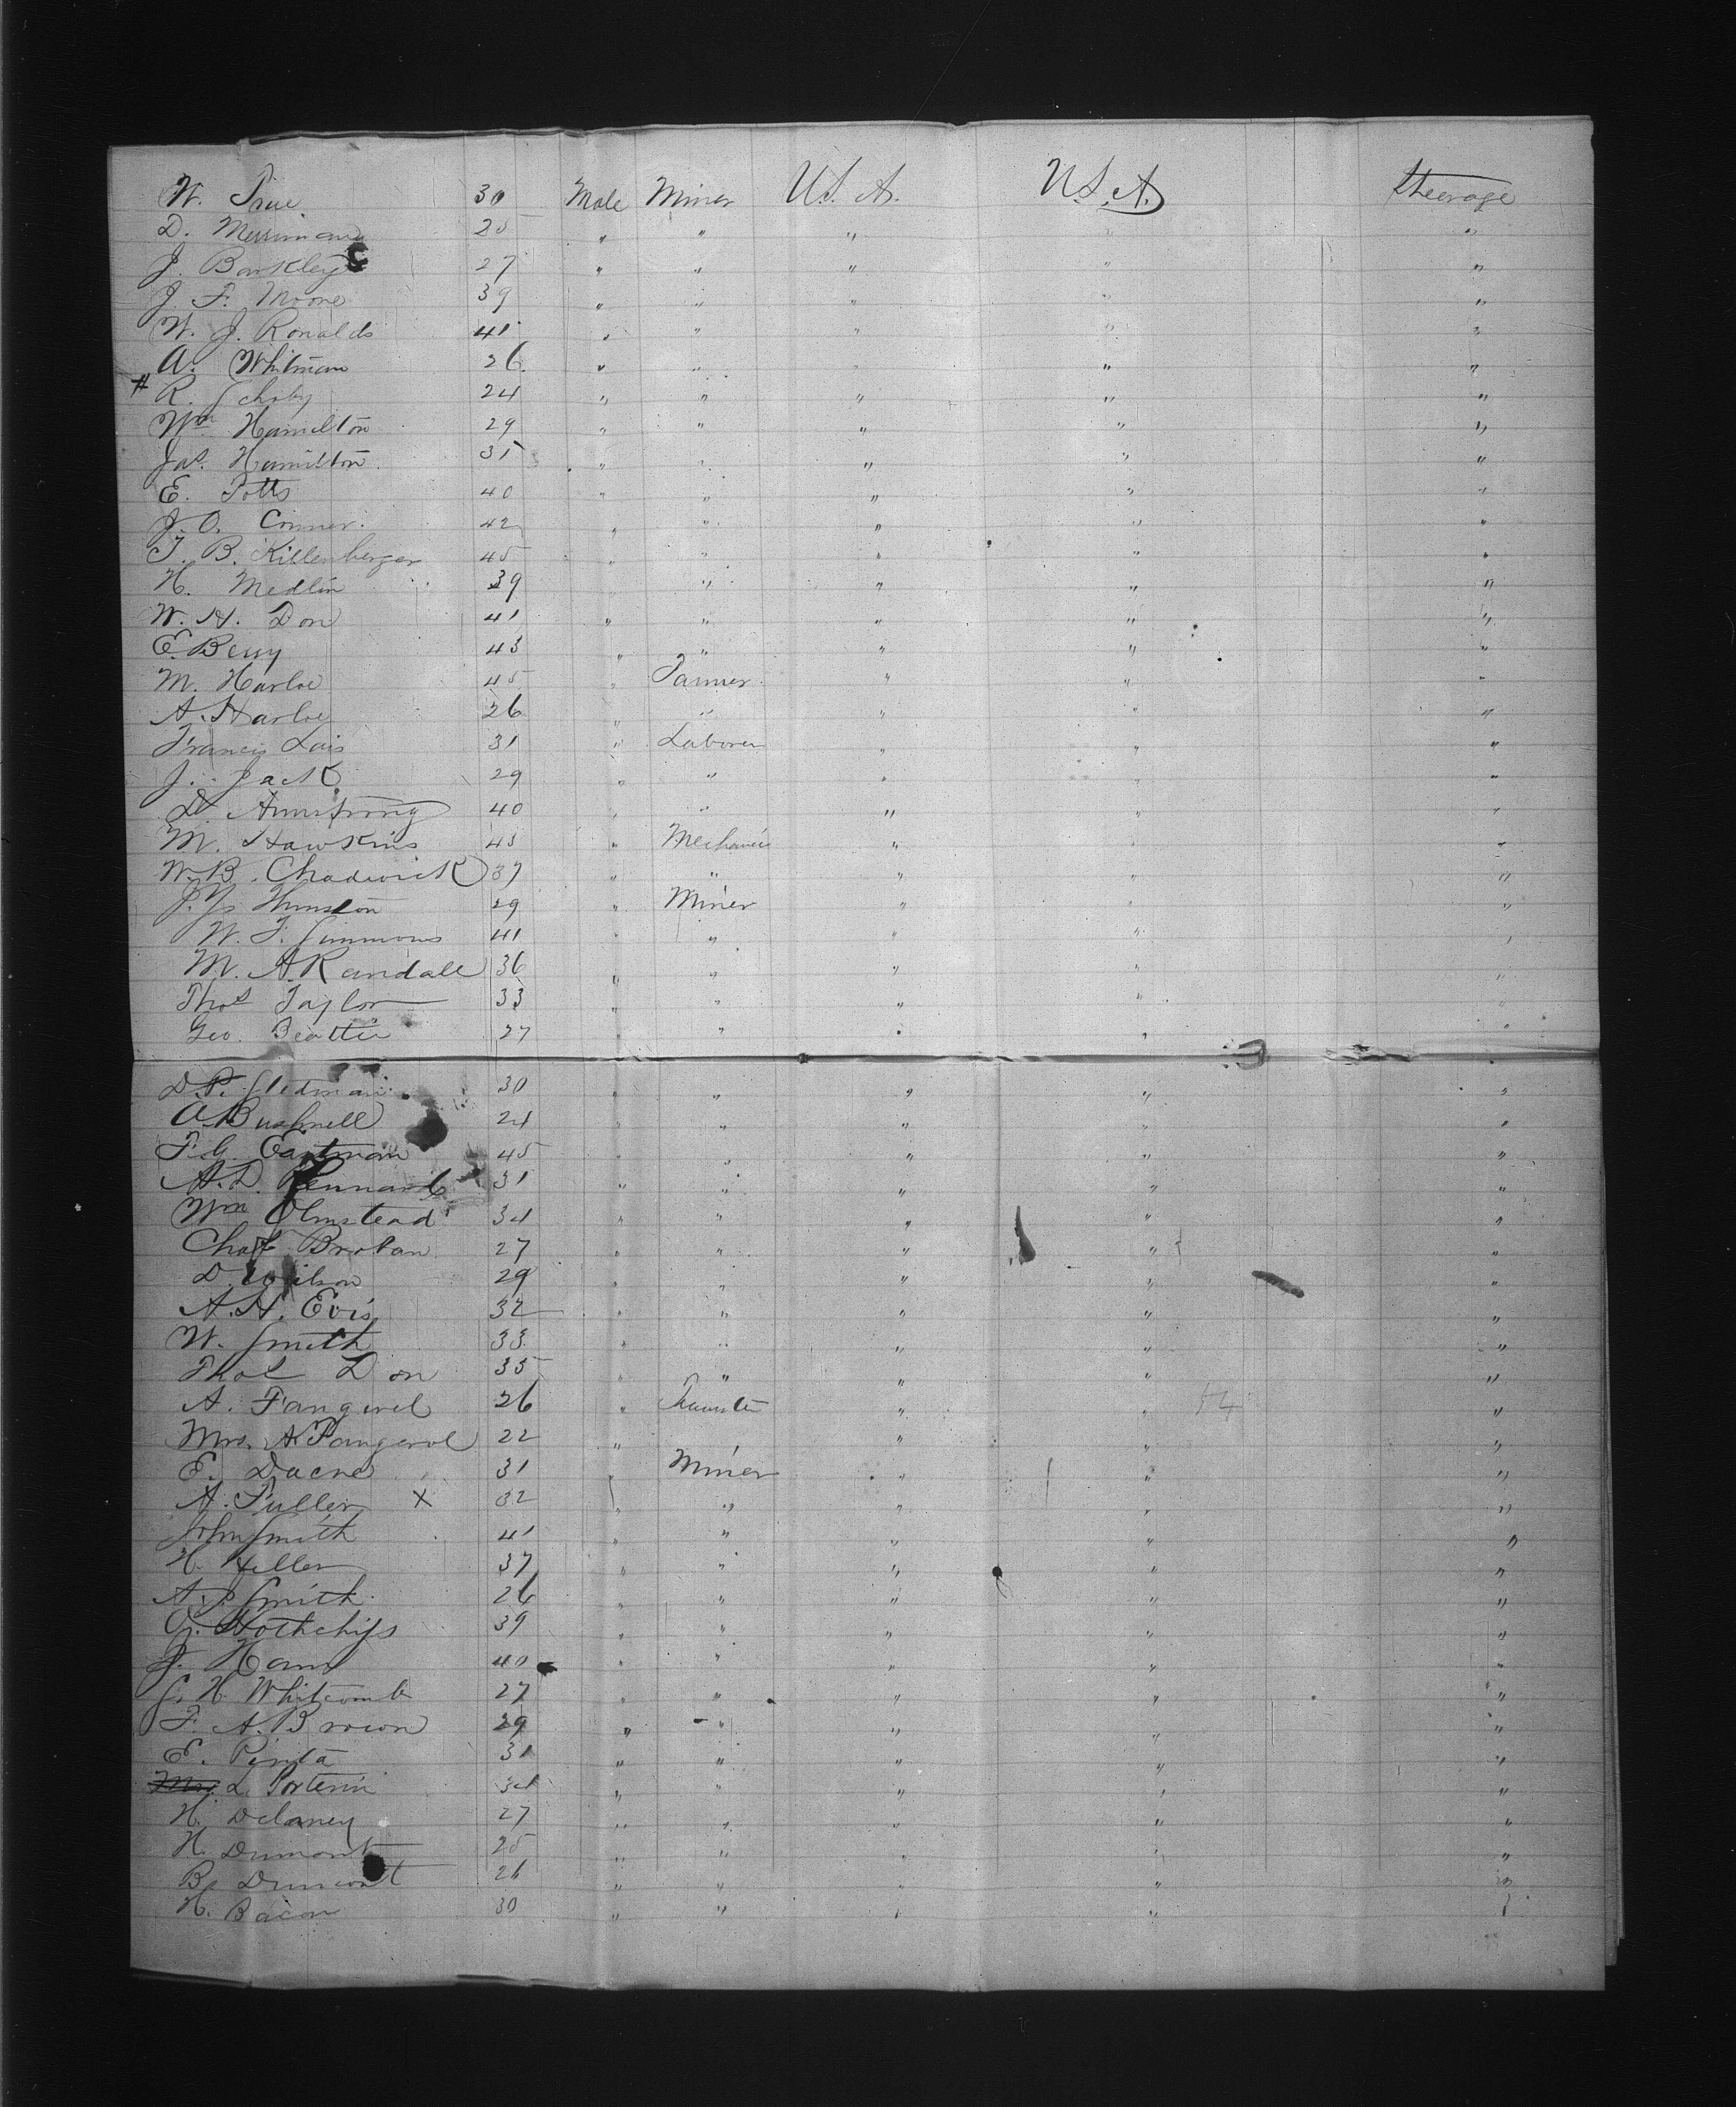 W. True 30 Male Miner U.S.A. U.S.A. Steerage
D. Merriman 25 " " " " "
J. Barkley 27 " " " " "
J. F. Moore 39 " " " " "
W. J. Ronalds 41 " " " " "
A. Whitman 26 " " " " "
# R. Schoby 24 " " " " "
Wm Hamilton 29 " " " " "
Jas. Hamilton 31 " " " " "
E. Potts 40 " " " " "
J. O. Conner 42 " " " " "
T. B. Killenberger 45 " " " " "
H. Medlin 39 " " " "
W. H. Don 41 " " " " "
E. Berry 43 " " " " "
M. Harloe 45 " Farmer " " "
A. Harloe 26 " " " " "
Francis Lois 31 " Laborer " " "
J. Jack 29 " " " " "
D. Armstrong 40 " " " " "
M. Hawkins 43 " Mechanic " " "
W. B. Chadwick 37 " " " " "
29 " Miner " " "
W. F. Simmons 41 " " " " "
M. A. Randall 36 " " " " "
Thos Taylor 33 " " " " "
Geo. Beattie 27 " " " " "
D. P. Stedman 30 " " " " "
A. Bushnell 24 " " " " "
F. G. Eastman 45 " " " " "
A. D. Kennard 31 " " " " "
Wm Olmstead 34 " " " " "
Chas Brotan 27 " " " " "
D. Wilson 29 " " " " "
A. H. Evis 32 " " " " "
W. Smith 33 " " " " "
Thos Don 35 " " " " "
A. Fangerel 26 " Teamster " " "
Mrs. A. Fangerol 22 " " " "
E. Dacne 31 " Miner " " "
A. Fuller X 32 " " " " "
John Smith 41 " " " " "
H. Heller 37 " " " " "
A. J. Smith 26 " " " " "
G. Hothchiss 39 " " " " "
J. Ham 40 " " " " "
S. H. Whitcomb 27 " " " " "
F. A. Brown 29 " " " " "
E. Pinta 31 " " " " "
Mrs. L. Porterin 34 " " " " "
H. Delaney 27 " " " " "
H. Dumont 25 " " " " "
B. Dumont 26 " " " " "
H. Bacon 30 " " " " "